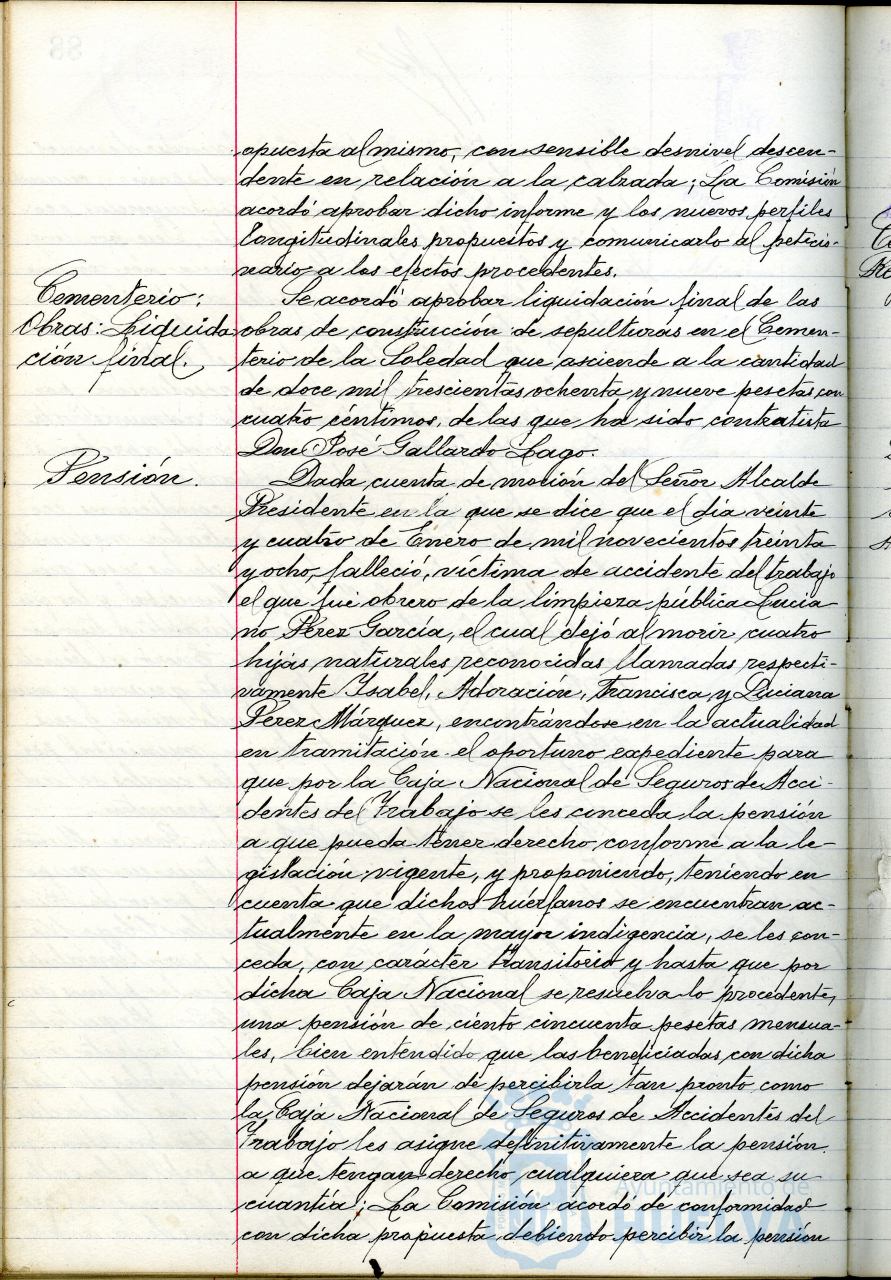 opuesta al mismo, con sensible desnivel descen-
dente en relación a la calzada; La Comisión
acordó aprobar dicho informe y los nuevos perfiles
longitudinales propuestos y comunicarlo al peticio-
nario a los efectos procedentes.
Cementerio:
Obras: Liquida
ción final.
Se acordó aprobar liquidación final de las
obras de construcción de sepulturas en el Cemen-
terio de la Soledad que asciende a la cantidad
de doce mil trescientas ochenta y nueve pesetas con
cuatro céntimos, de las que ha sido contratista
Don José Gallardo Lago.
Pensión.
Dada cuenta de moción del Señor Alcalde
Presidente en la que se dice que el día veinte
y cuatro de Enero de mil novecientos treinta
y ocho, falleció, víctima de accidente del trabajo
el que fué obrero de la limpieza pública Lucia-
no Pérez García, el cual dejó al morir cuatro
hijas naturales reconocidas llamadas respecti-
vamente Isabel, Adoración, Francisca y Luciana
Pérez Márquez, encontrándose en la actualidad
en tramitación el oportuno expediente para
que por la Caja Nacional de Seguros de Acci-
dentes del Trabajo se les conceda la pensión
a que pueda tener derecho conforme a la le-
gislación vigente, y proponiendo, teniendo en
cuenta que dichos huérfanos se encuentran ac-
tualmente en la mayor indigencia, se les con-
ceda, con carácter transitorio y hasta que por
dicha Caja Nacional se resuelva lo procedente,
una pensión de ciento cincuenta pesetas mensua-
les, bien entendido que las beneficiadas con dicha
pensión dejarán de percibirla tan pronto como
la Caja Nacional de Seguros de Accidentes del
Trabajo les asigne definitivamente la pensión
a que tengan derecho cualquiera que sea su
cuantía; La Comisión acordó de conformidad
con dicha propuesta, debiendo percibir la pensión
Ayuntamiento de
HUELVA